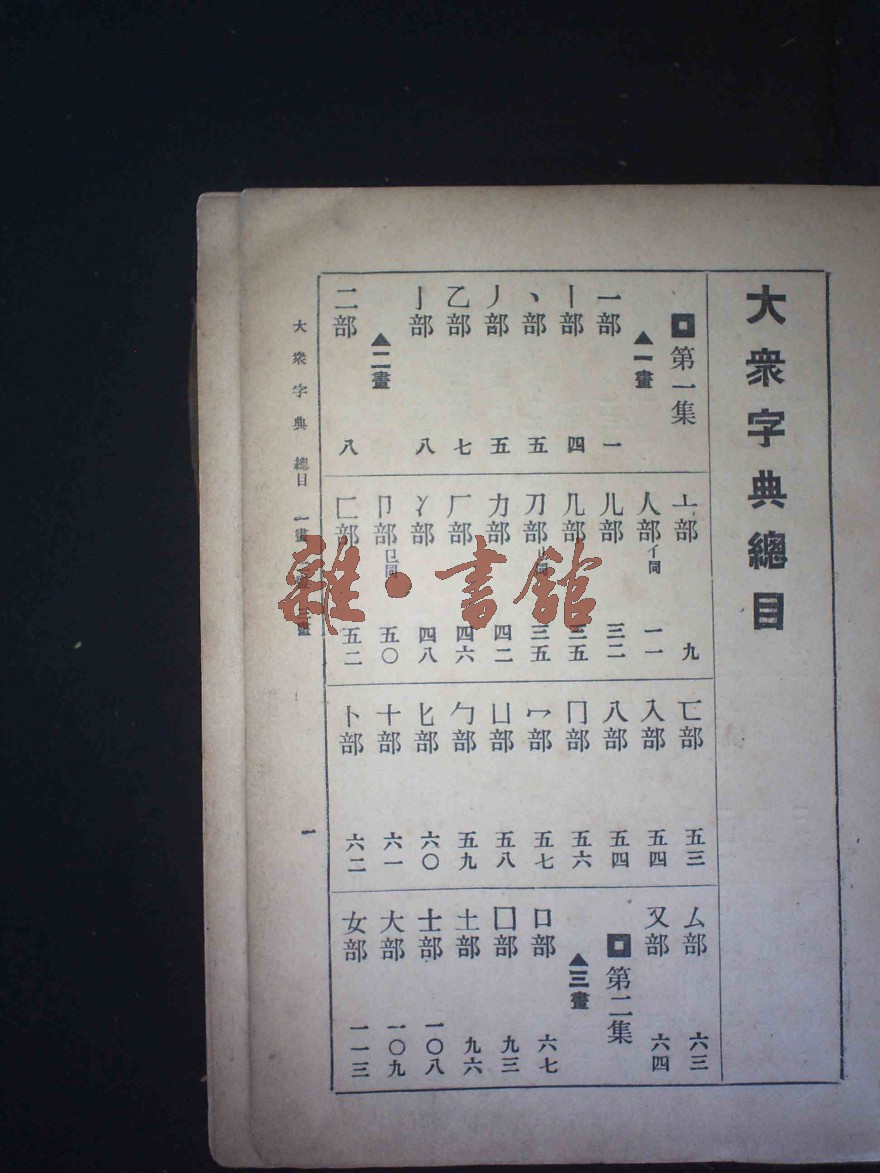 大衆字典總目
第一集
▲一畫
一部 一
丨部 四
丶部 五
丿部 五
乙部 七
亅部 八
▲二畫
二部 八
亠部 九
人部 亻同 一一
儿部 三二
几部 三五
刀部 刂同 三五
力部 四二
厂部 四六
冫部 四八
卩部 㔾同 五〇
匚部 五二
匸部 五三
入部 五四
八部 五四
冂部 五六
冖部 五七
凵部 五八
勹部 五九
匕部 六〇
十部 六一
卜部 六二
厶部 六三
又部 六四
第二集
▲三畫
口部 六七
囗部 九三
土部 九六
士部 一〇八
大部 一〇九
女部 一一三
大衆字典 總目 一畫 三畫
一
雜·書館